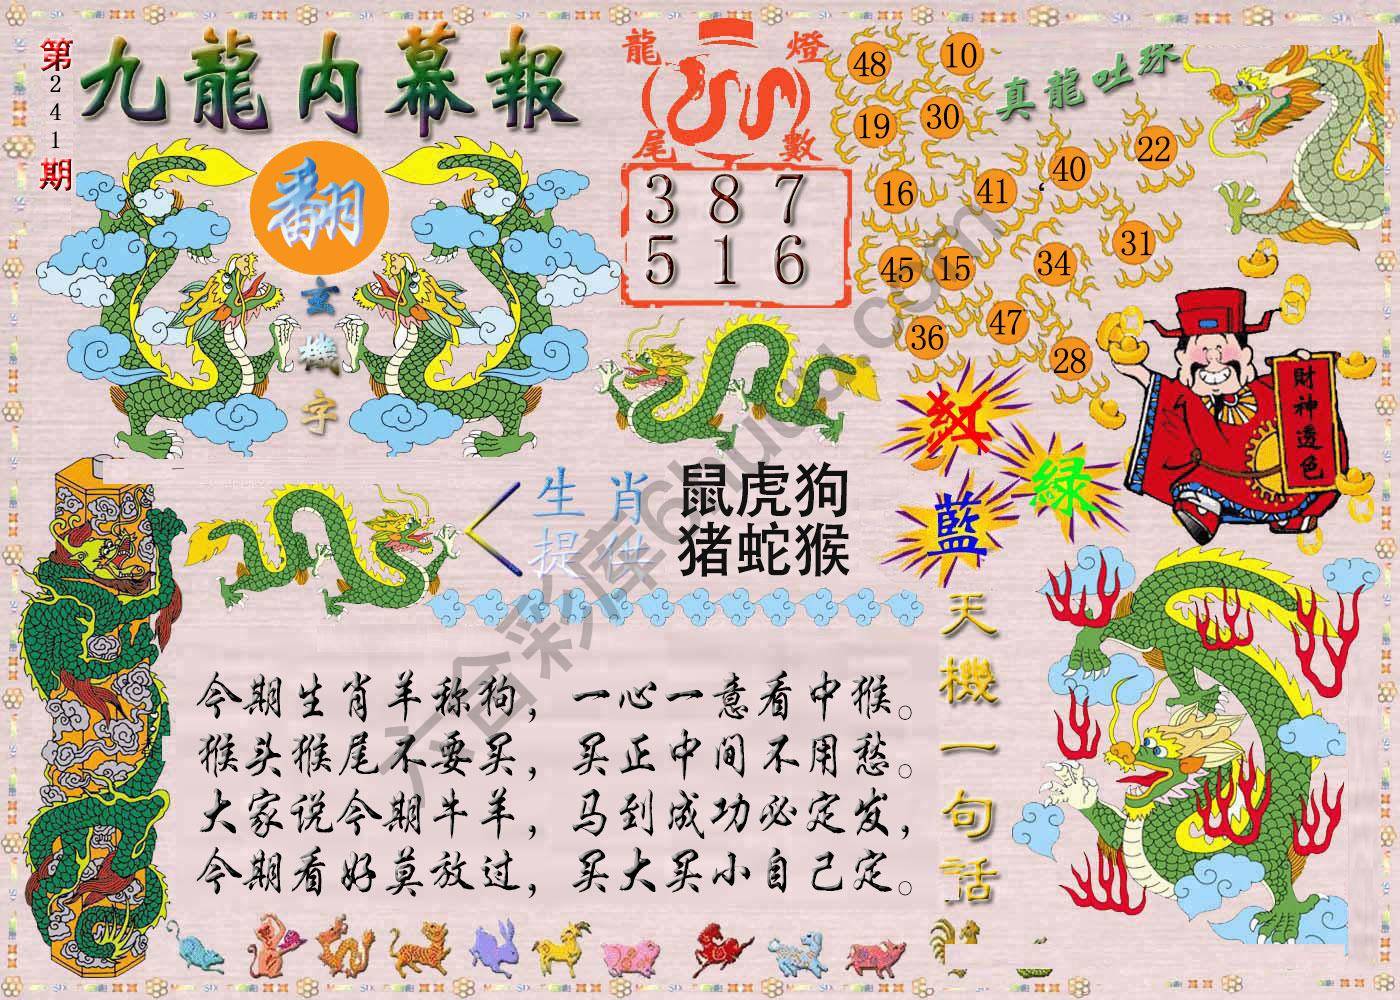 第241期
九龍内幕報
翻
玄機字
龍燈
尾數
3 8 7
5 1 6
真龍吐珠
48
10
19
30
22
40
16
41
31
45
15
34
36
47
28
財神透色
紅
綠
藍
生肖
提供
鼠虎狗
猪蛇猴
天機一句话
今期生肖羊称狗，一心一意看中猴。
猴头猴尾不要买，买正中间不用愁。
大家说今期牛羊，马到成功必定发，
今期看好莫放过，买大买小自己定。
六合彩库6hudd.com